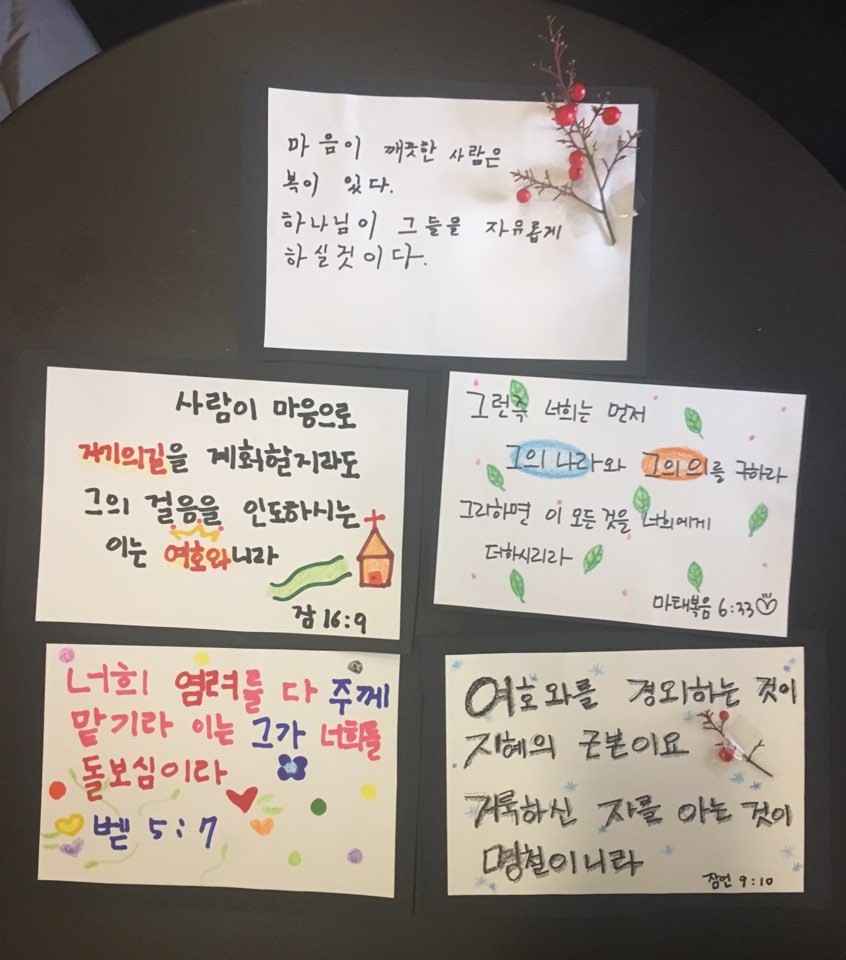 마음이 깨끗한 사람은
복이 있다.
하나님이 그들을 자유롭게
하실것이다.
사람이 마음으로
자기의길을 계획할지라도
그의 걸음을 인도하시는
이는 여호와니라
잠 16:9
그런즉 너희는 먼저
그의 나라와 그의 의를 구하라
그리하면 이 모든 것을 너희에게
더하시리라
마태복음 6:33
너희 염려를 다 주께
맡기라 이는 그가 너희를
돌보심이라
벧 5:7
여호와를 경외하는 것이
지혜의 근본이요
거룩하신 자를 아는 것이
명철이니라
잠언 9:10